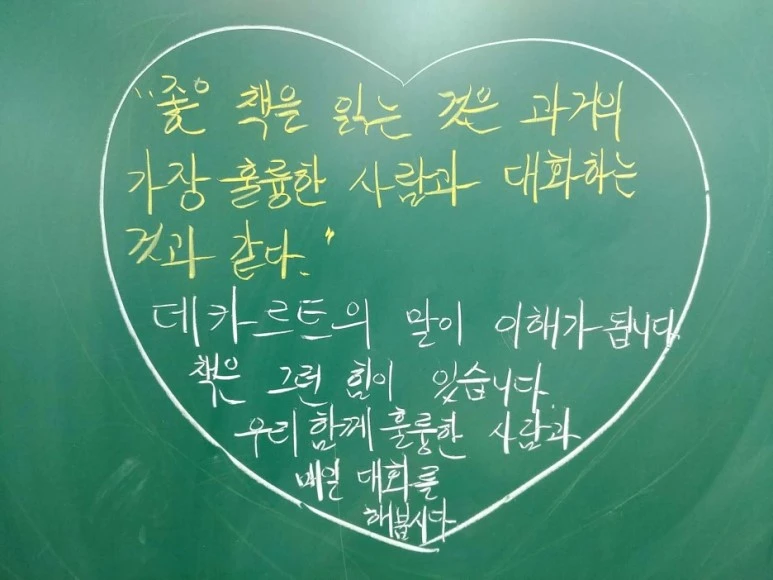 "좋은 책을 읽는 것은 과거의
가장 훌륭한 사람과 대화하는
것과 같다."
데카르트의 말이 이해가 됩니다.
책은 그런 힘이 있습니다.
우리 함께 훌륭한 사람과
매일 대화를
해봅시다